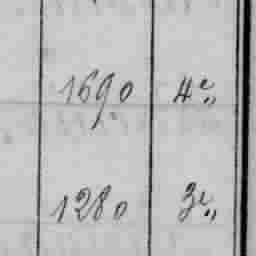 1690 4e„
1280 3e„